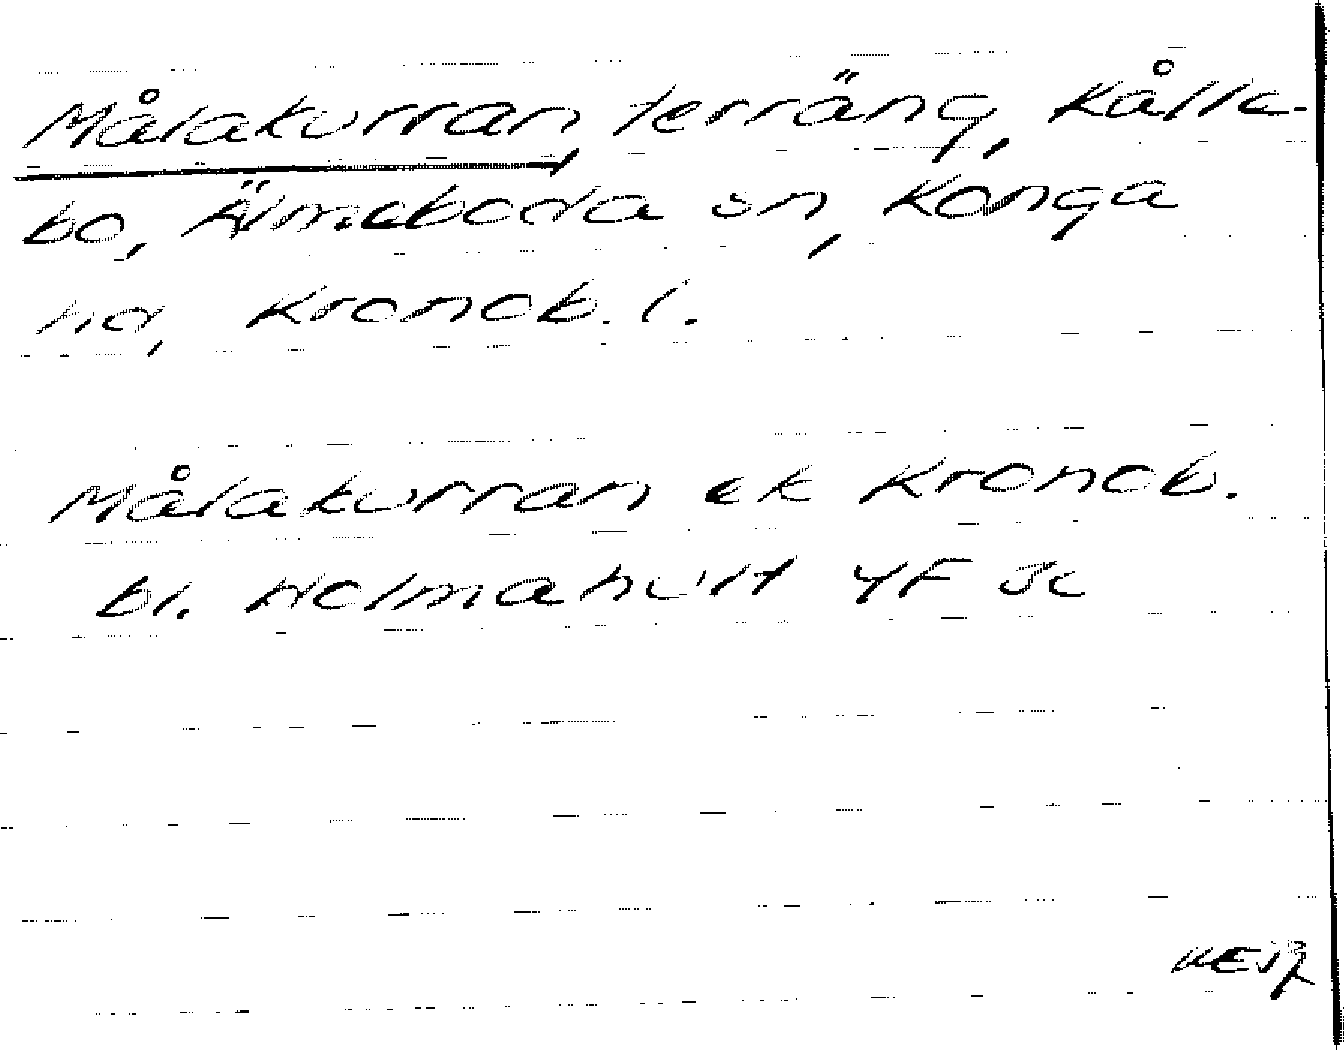 Målakurran, terräng, Kålle-
bo, Älmeboda sn, Konga
hd, Kronob. l.
Målakurran ek Kronob.
bl. Holmahult 4F 5c